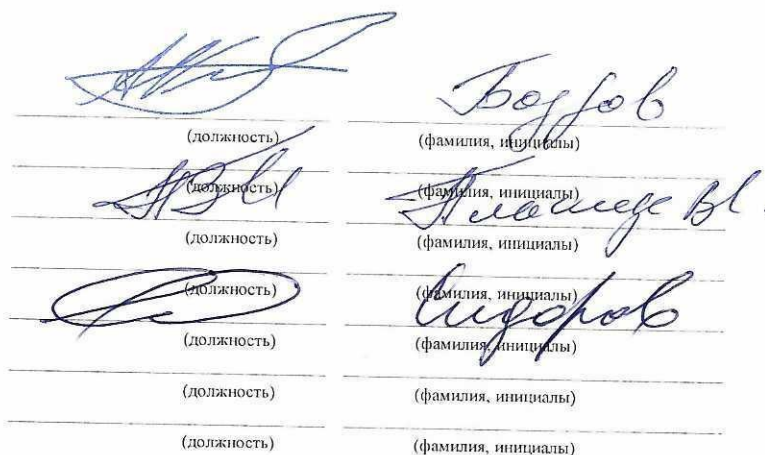 (должность) (фамилия, инициалы)
(должность) (фамилия, инициалы)
(должность) (фамилия, инициалы)
(должность) (фамилия, инициалы)
Сидоров
(должность) (фамилия, инициалы)
(должность) (фамилия, инициалы)
(должность) (фамилия, инициалы)